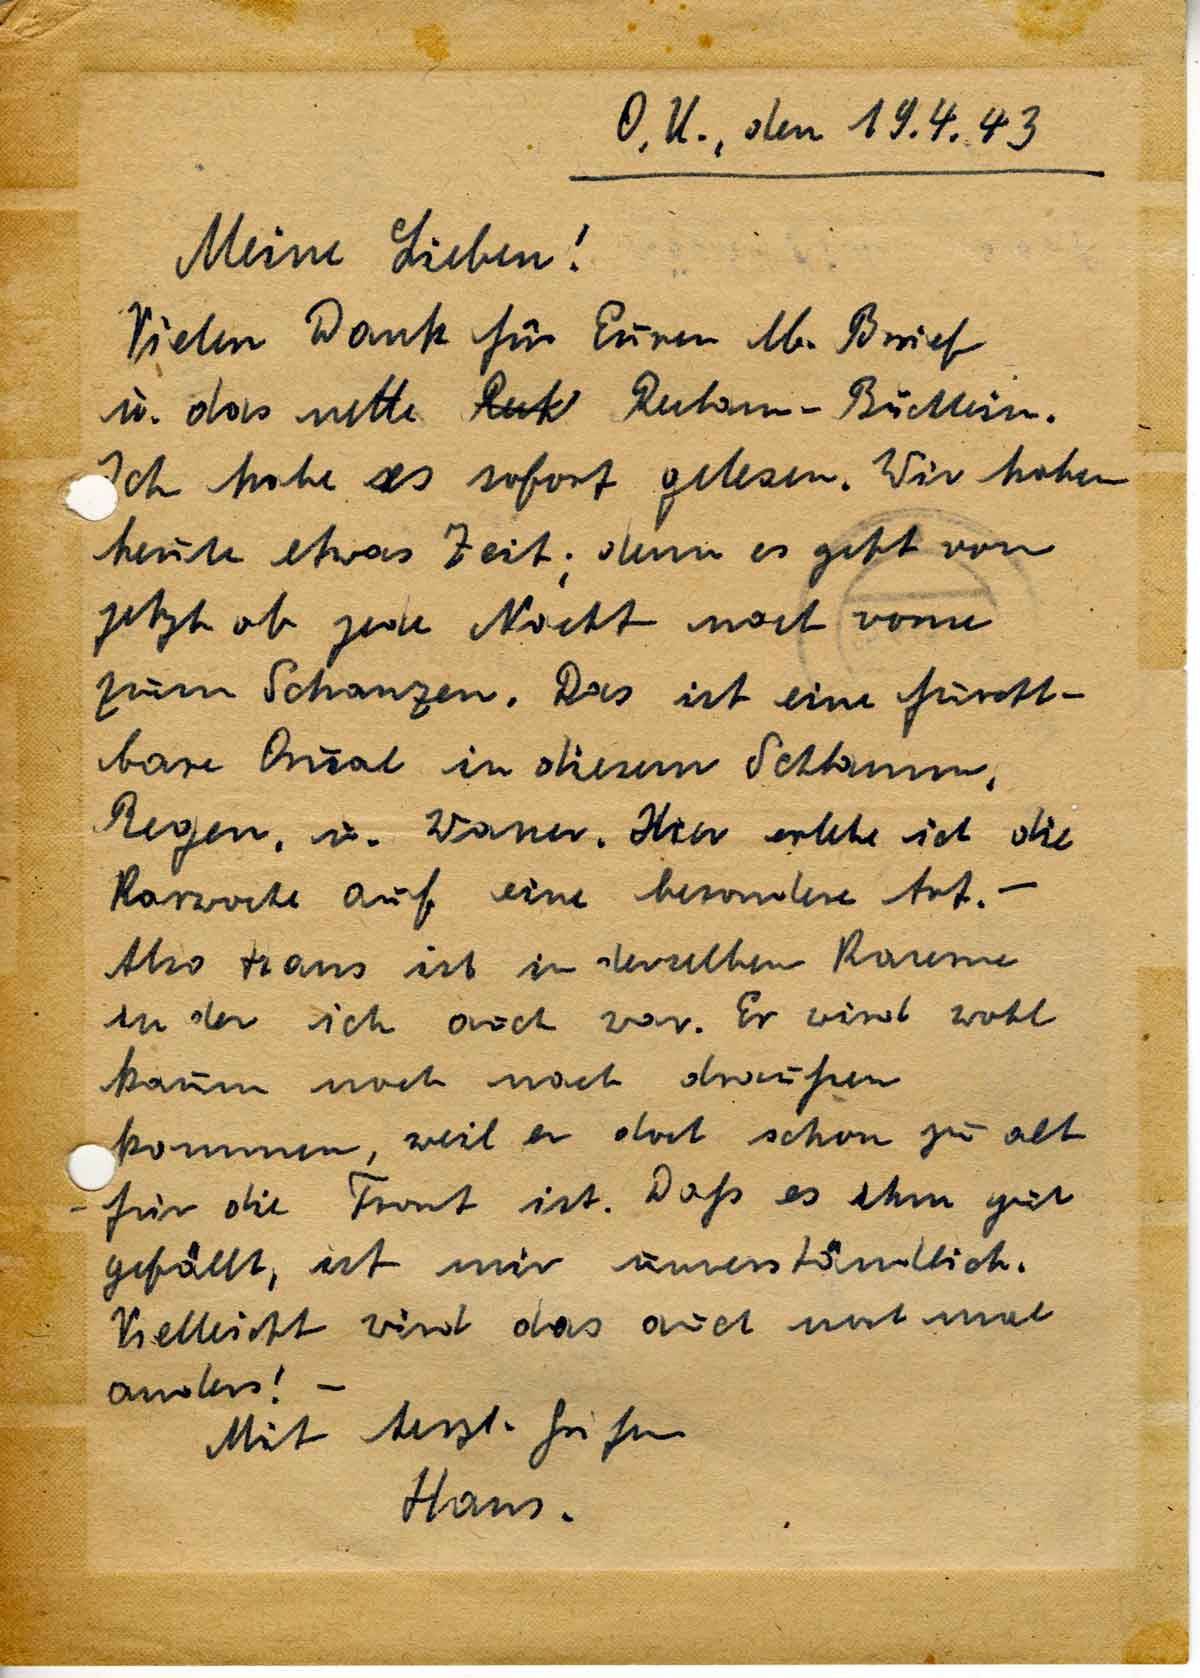 O.U., den 19.4.43
Meine Lieben!
Vielen Dank für Euren lb. Brief
u. das nette Rek Reclam-Büchlein.
Ich habe es sofort gelesen. Wir haben
heute etwas Zeit, denn es geht von
jetzt ab jede Nacht nach vorne
zum Schanzen. Das ist eine furcht-
bare Qual in diesem Schlamm,
Regen, u. Wasser. Hier erlebe ich die
Karwoche auf eine besondere Art. –
Also Hans ist in derselben Kaserne
in der ich auch war. Er wird wohl
kaum noch nach draußen
kommen, weil er doch schon zu alt
für die Front ist. Daß es ihm gut
gefällt, ist mir unverständlich.
Vielleicht wird das auch noch mal
anders! –
Mit herzl. Grüßen
Hans.